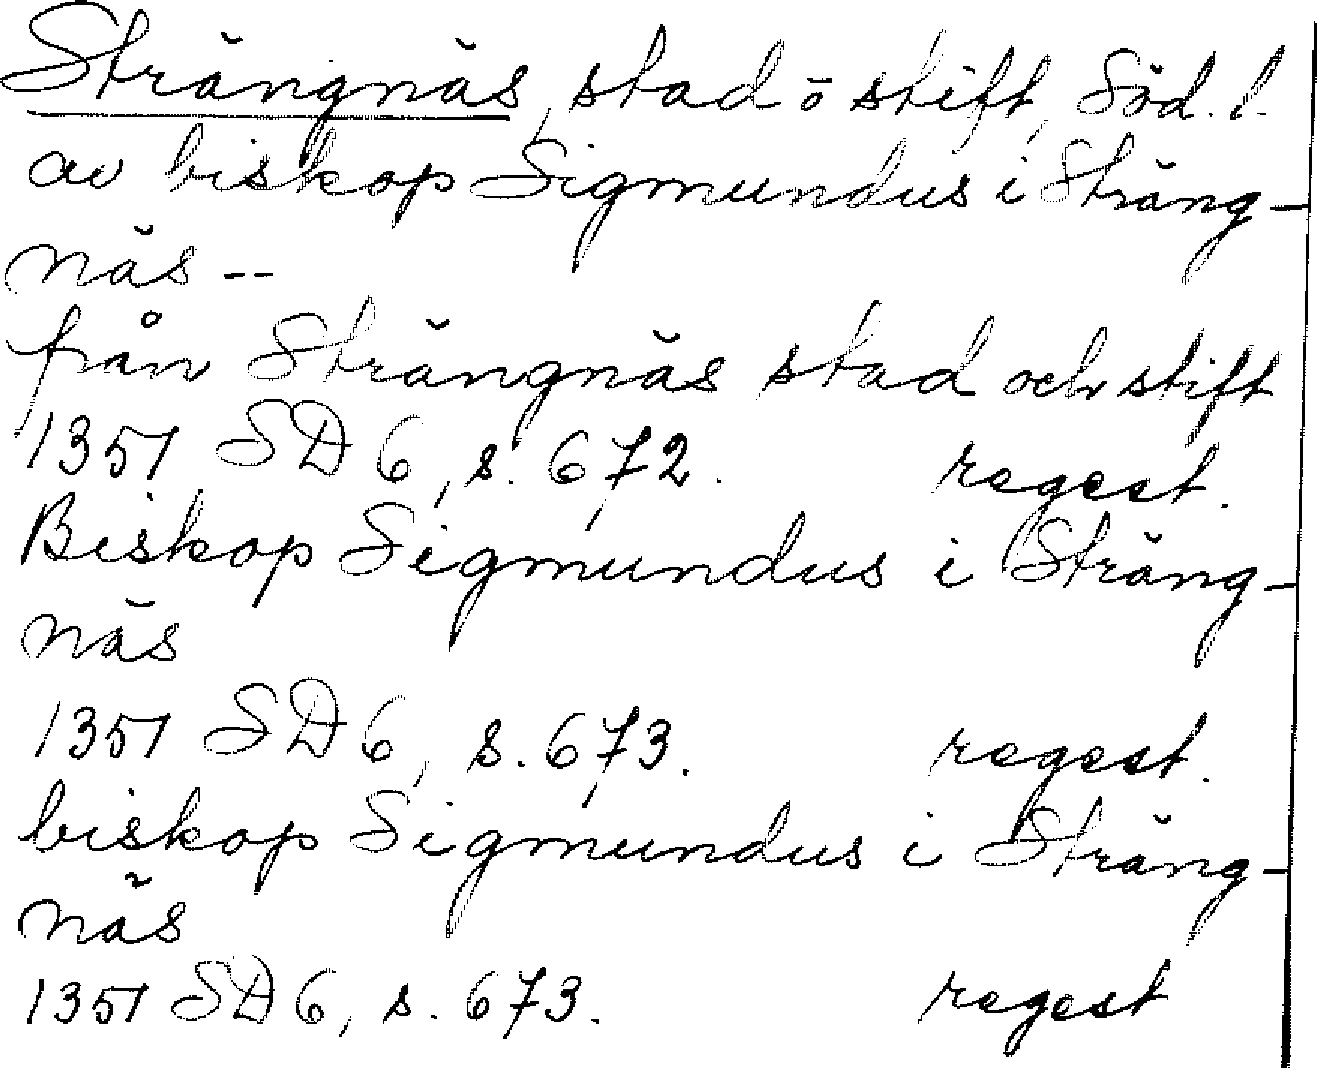 Strängnäs, stad ō stift, Söd. l.
av biskop Sigmundus i Sträng-
näs --
från Strängnäs stad och stift
1351 SD 6, s. 672. regest.
Biskop Sigmundus i Sträng-
näs
1351 SD 6, s. 673. regest.
biskop Sigmundus i Sträng-
näs
1351 SD 6, s. 673. regest